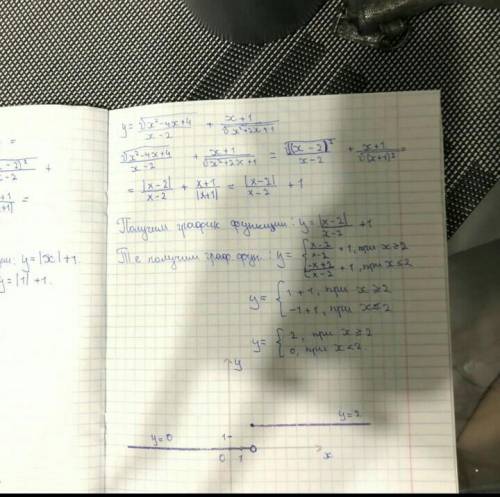 y = √(x²-4x+4)/(x-2) + (x+1)/√(x²+2x+1)
√(x²-4x+4)/(x-2) + (x+1)/√(x²+2x+1) = √((x-2)²)/(x-2) + (x+1)/√((x+1)²)
= |x-2|/(x-2) + (x+1)/|x+1| = |x-2|/(x-2) + 1
Получим график функции: y = |x-2|/(x-2) + 1
Те получим граф. фун.: y = { (x-2)/(x-2) + 1, при x≥2
(-x+2)/(x-2) + 1, при x≤2
y = { 1+1, при x≥2
-1+1, при x≤2
y = { 2, при x≥2
0, при x<2
y
y=2
y=0
1
0 1
x
y=|x|+1.
y=|1|+1.